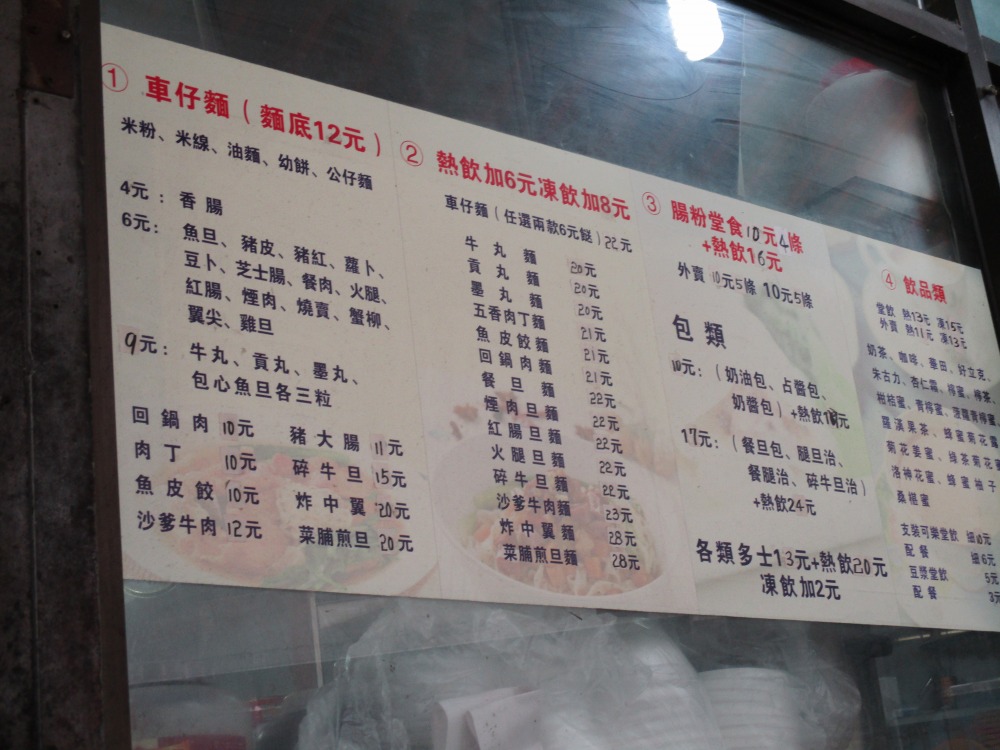 ① 車仔麵（麵底12元）
米粉、米線、油麵、幼餅、公仔麵
4元：香腸
6元：魚旦、豬皮、豬紅、蘿卜、
豆卜、芝士腸、餐肉、火腿、
紅腸、煙肉、燒賣、蟹柳、
翼尖、雞旦
9元：牛丸、貢丸、墨丸、
包心魚旦各三粒
回鍋肉 10元 豬大腸 11元
肉丁 10元 碎牛旦 15元
魚皮餃 10元 炸中翼 20元
沙爹牛肉 12元 菜脯煎旦 20元
② 熱飲加6元凍飲加8元
車仔麵（任選兩款6元餸）22元
牛丸麵 20元
貢丸麵 20元
墨丸麵 20元
五香肉丁麵 21元
魚皮餃麵 21元
回鍋肉麵 21元
餐旦麵 22元
煙肉旦麵 22元
紅腸旦麵 22元
火腿旦麵 22元
碎牛旦麵 22元
沙爹牛肉麵 23元
炸中翼麵 28元
菜脯煎旦麵 28元
③ 腸粉堂食10元4條
+熱飲16元
外賣 10元5條 10元5條
包類
10元：（奶油包、占醬包、
奶醬包）+熱飲元
17元：（餐旦包、腿旦治、
餐腿治、碎牛旦治）
+熱飲24元
各類多士13元+熱飲20元
凍飲加2元
④ 飲品類
堂飲 熱13元 凍15元
外賣 熱11元 凍13元
奶茶、咖啡、華田、好立克、
朱古力、杏仁霜、檸蜜、檸茶、
柑桔蜜、青檸蜜、菠蘿青檸蜜、
羅漢果茶、蜂蜜菊花
菊花姜蜜、綠茶菊花
洛神花蜜、蜂蜜柚子
桑椹蜜
支裝可樂堂飲 細10元
配餐 細6元
豆漿堂飲 5元
配餐 3元